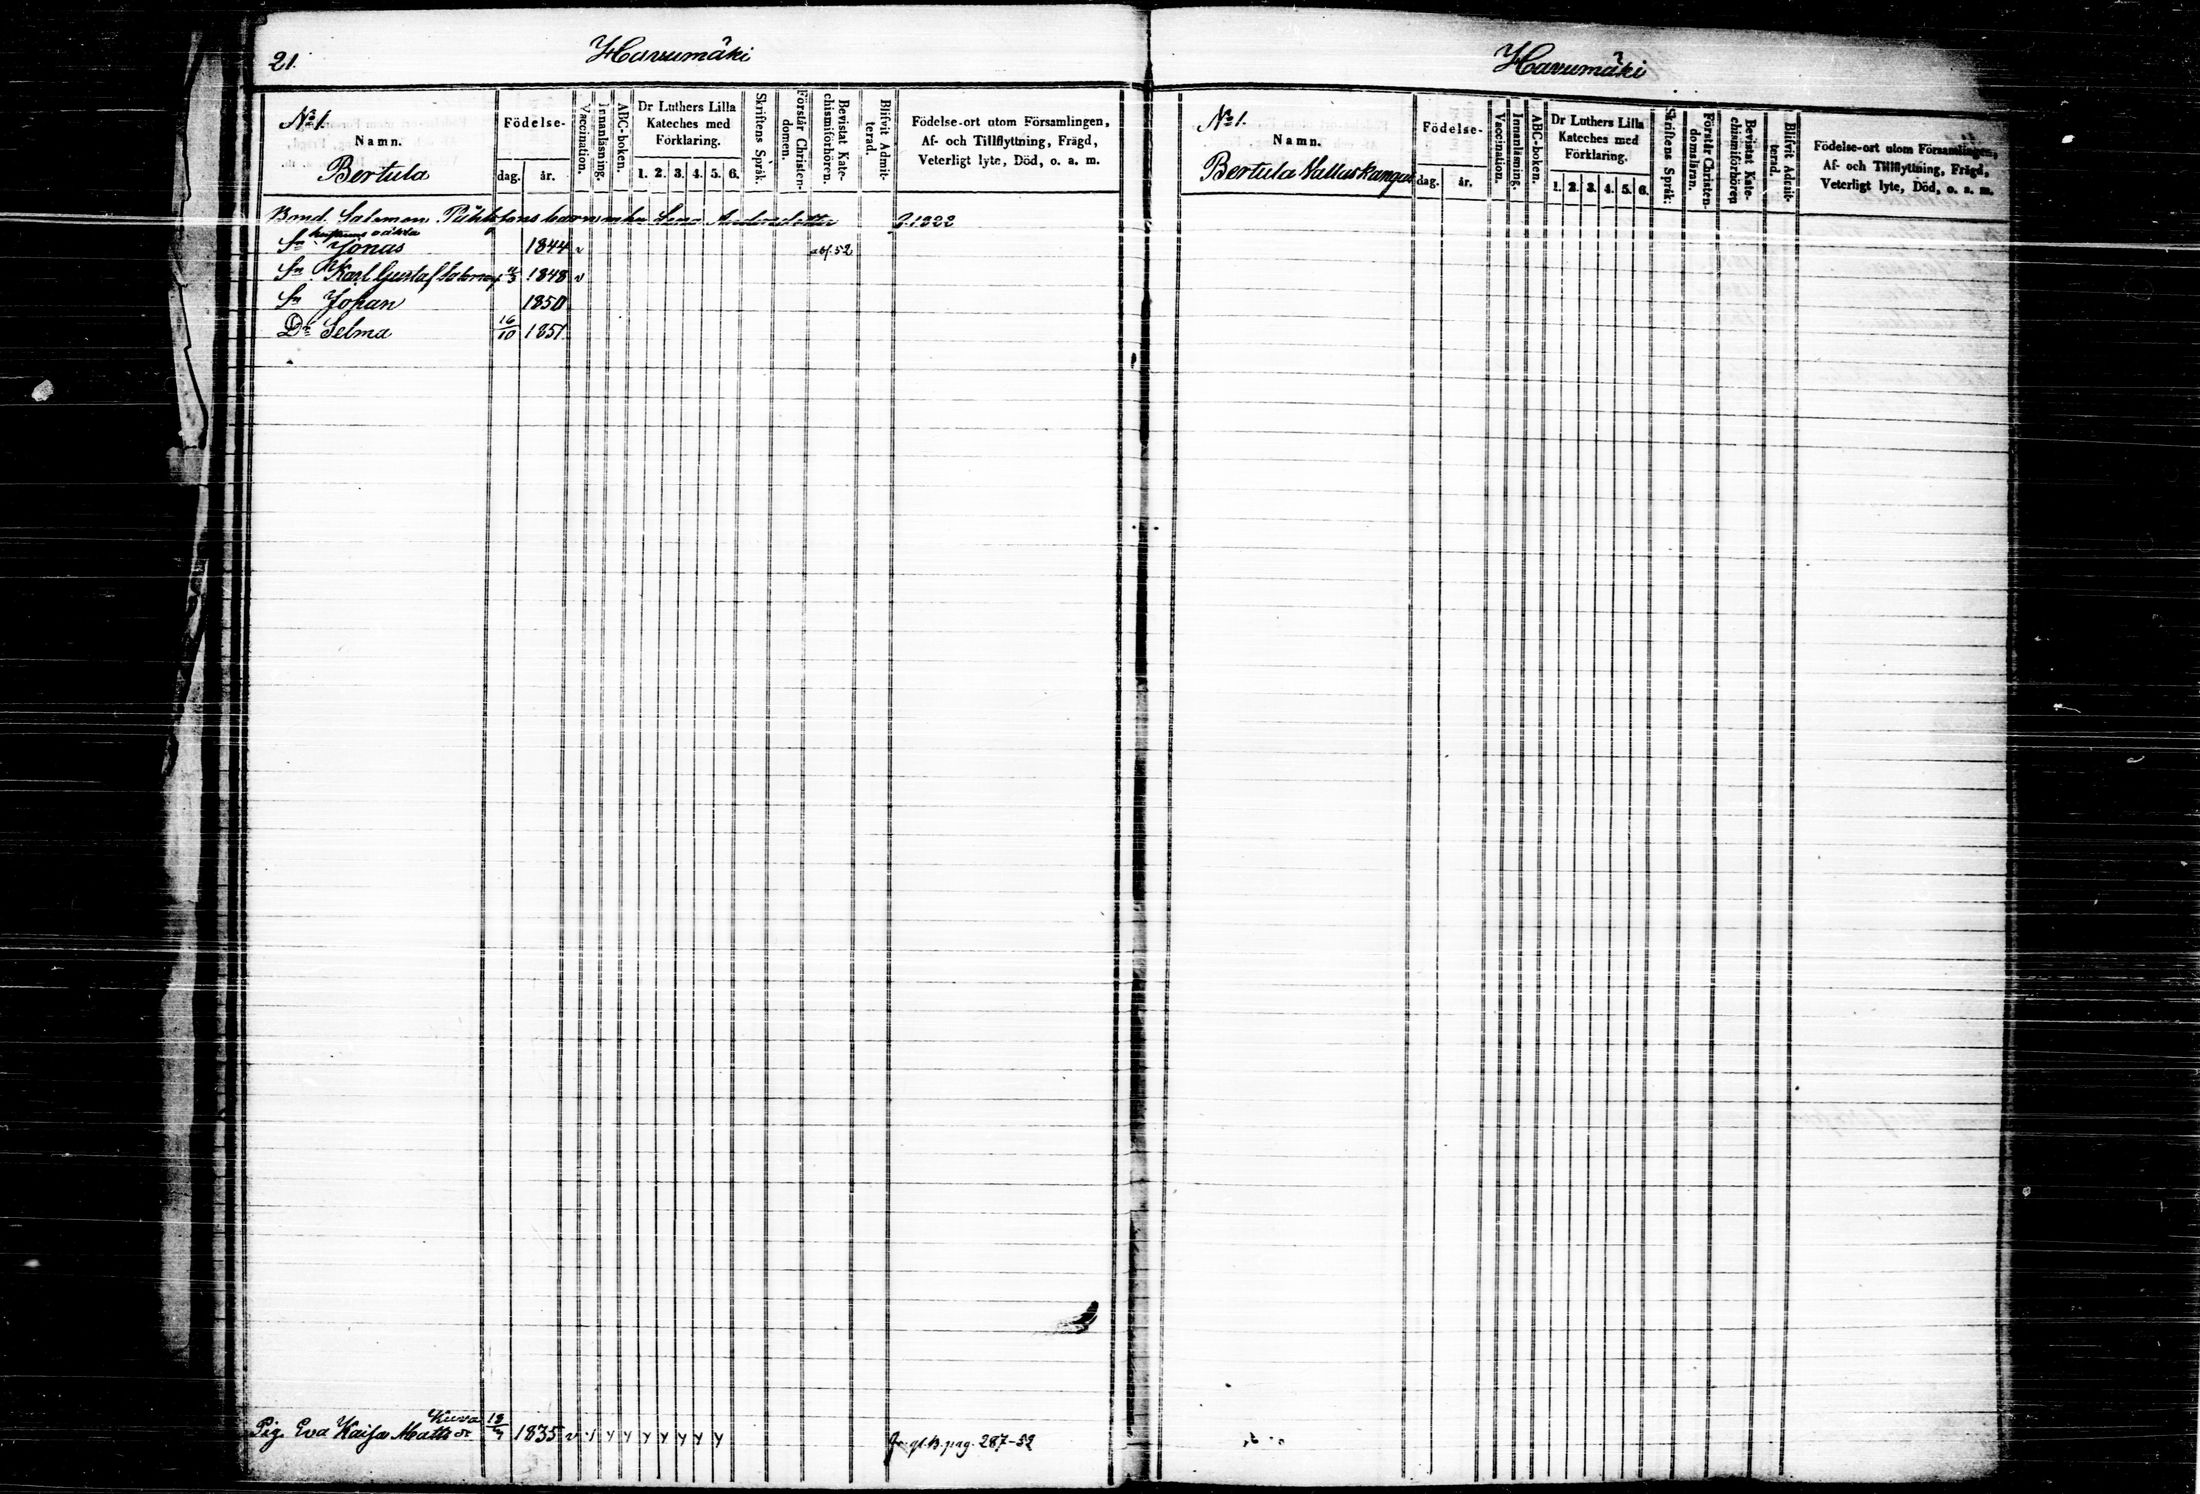 21.
Havumäki
No 1.
Namn.
Bertula
Födelse-
dag. år.
Vaccination.
Innanläsning.
ABC-boken.
Dr Luthers Lilla
Kateches med
Förklaring.
1. 2. 3. 4. 5. 6.
Skriftens Språk.
Förstår Christen-
domen.
Bevistat Kate-
chismiförhören.
Blifvit Admit-
terad.
Födelse-ort utom Församlingen,
Af- och Tillflyttning, Frägd,
Veterligt lyte, Död, o. a. m.
Bond. Salomon Lena Andersdotter f. 1822
Sn Jonas 1844 v 52
Sn Karl Gustaf 1848 v
Sn Johan 1850
Dr Selma 16/10 1851.
Pig. Eva Kaisa Matts dr 1835 v
pag. 287-52
Havumäki
No 1.
Namn.
Bertula Valluskangas
Födelse-
dag. år.
Vaccination.
Innanläsning.
ABC-boken.
Dr Luthers Lilla
Kateches med
Förklaring.
1. 2. 3. 4. 5. 6.
Skriftens Språk:
Förstår Christen-
domsläran.
Bevistat Kate-
chismiförhören
Blifvit Admit-
terad.
Födelse-ort utom Församlingen,
Af- och Tillflyttning, Frägd,
Veterligt lyte, Död, o. a. m.